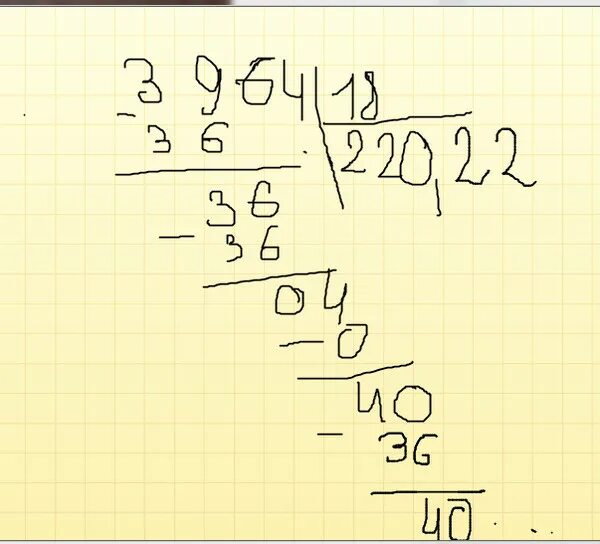 3964 18
- 36 220,22
36
- 36
04
- 0
40
- 36
40...